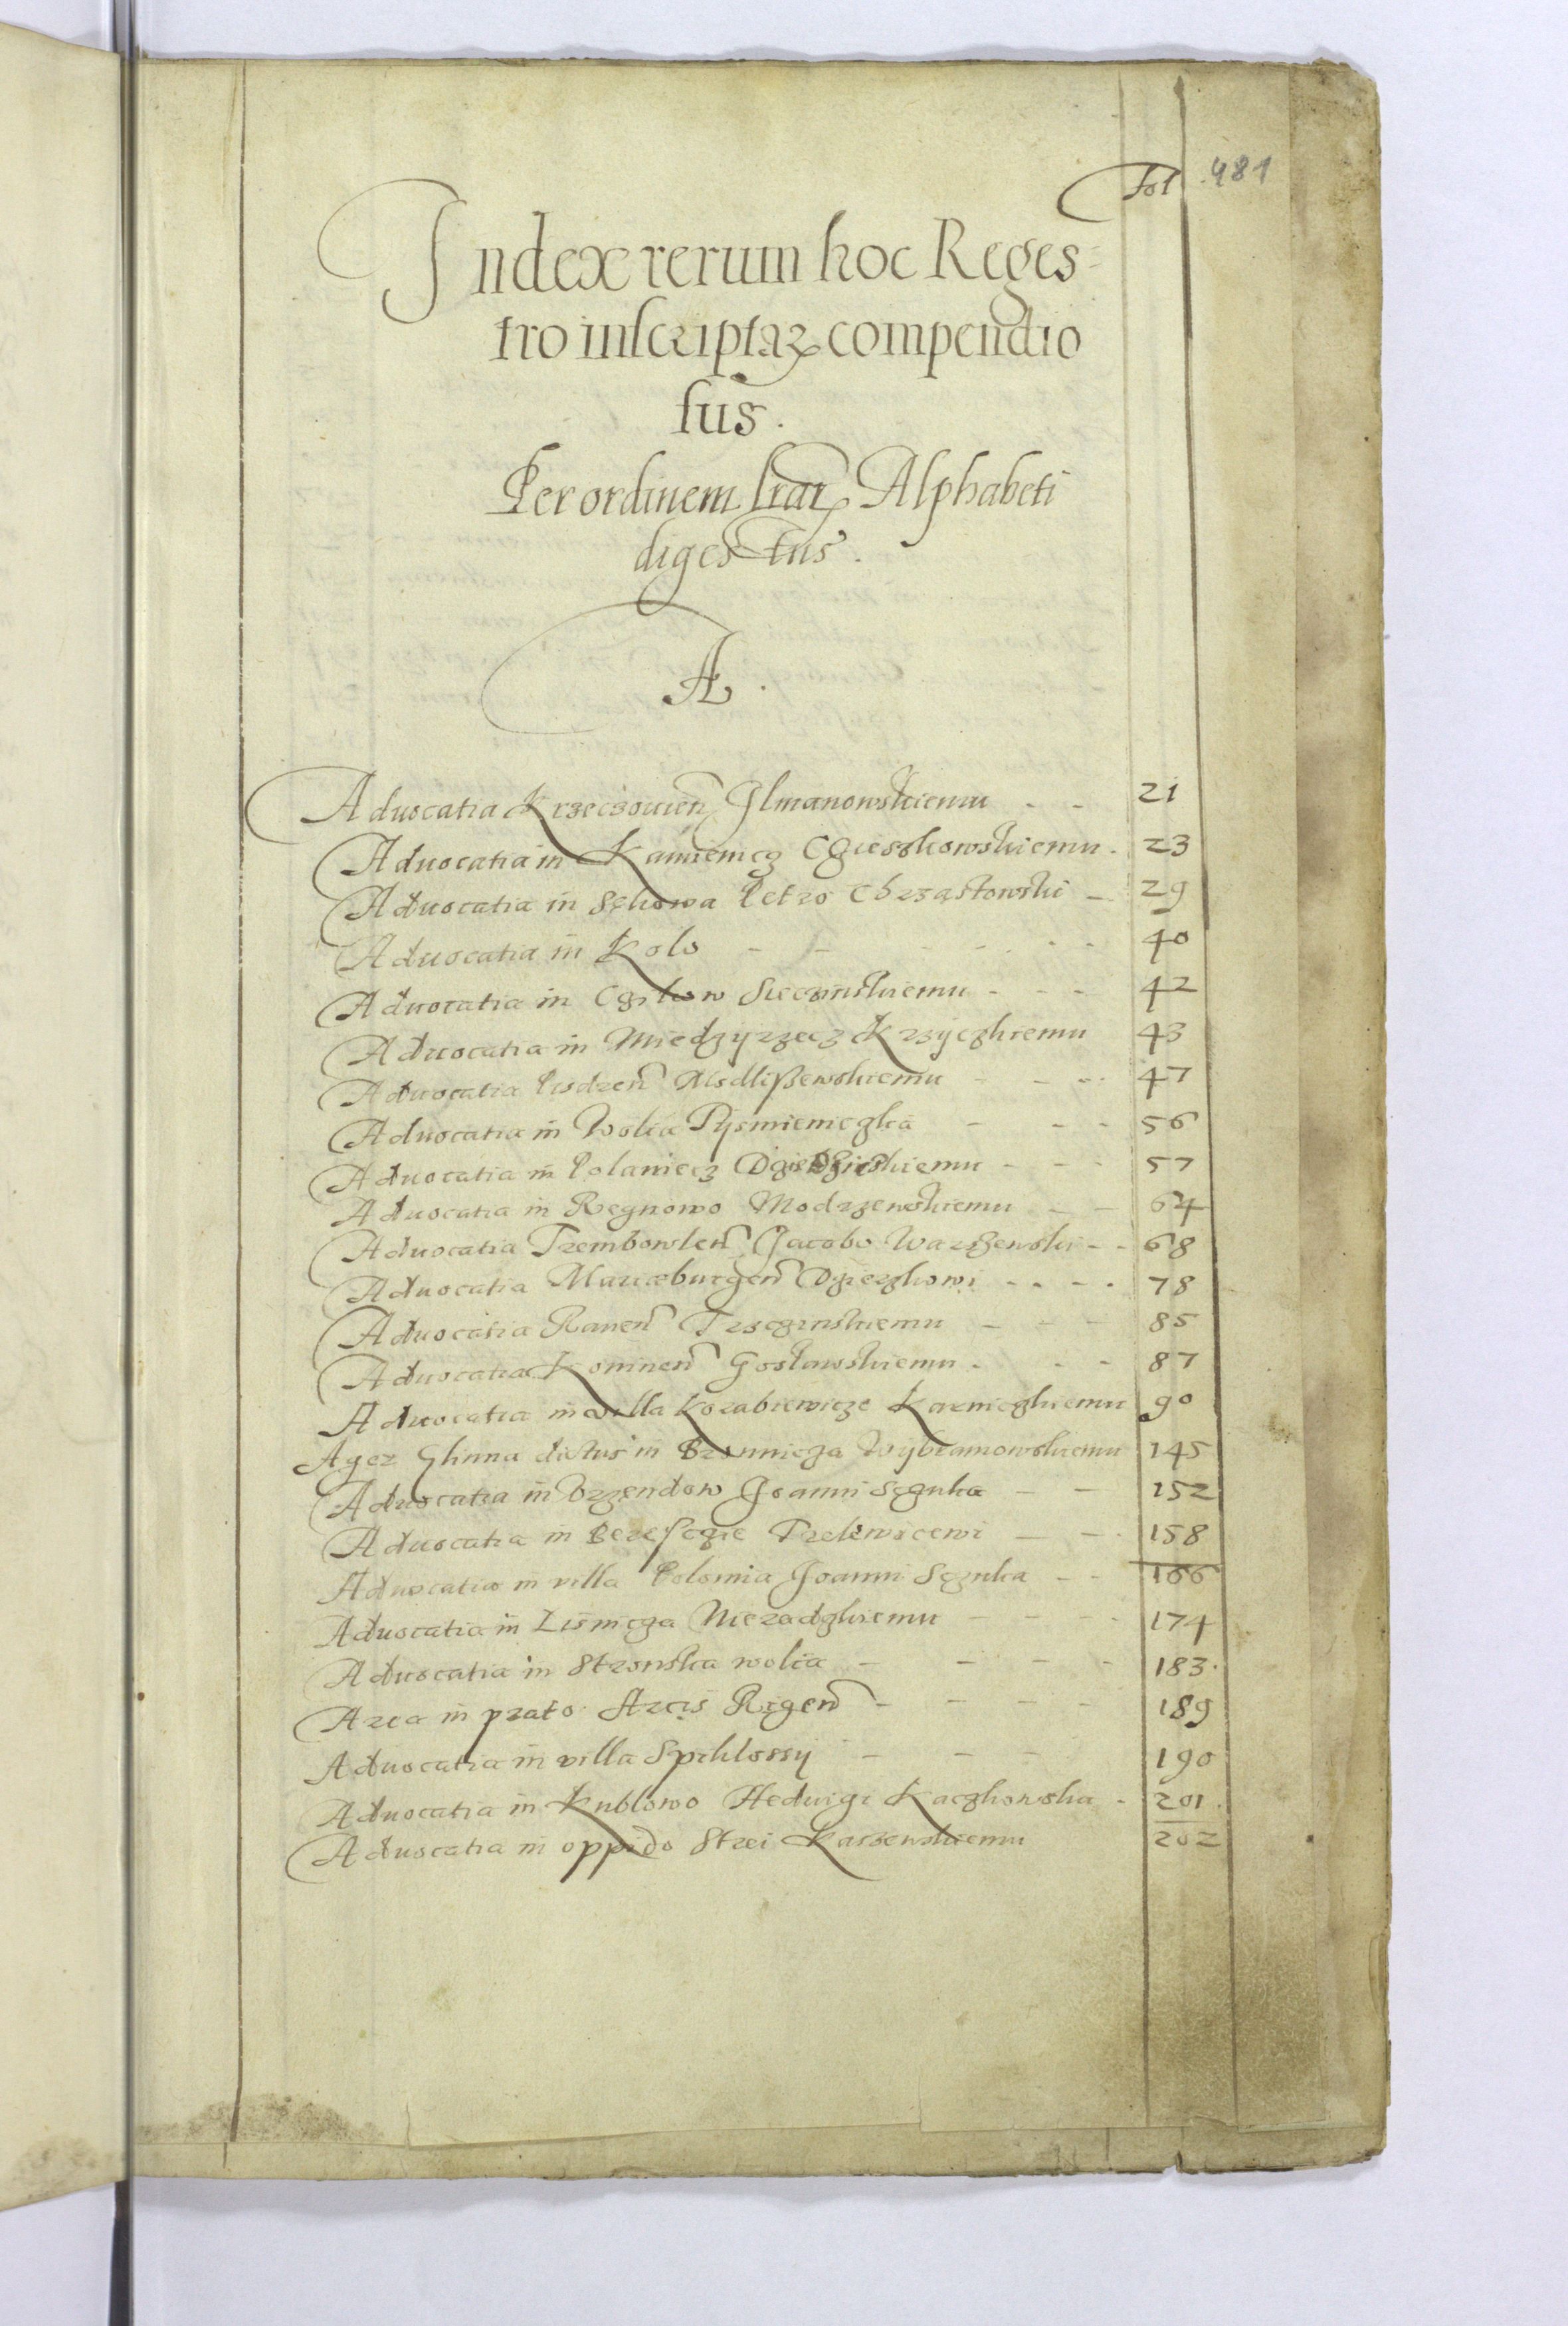 Fol 481
Index rerum hoc Reges=
tro inscriptaꝝ compendio
sus.
Per ordinem lrarꝝ Alphabeti
digestus.
A.
Aduocatia Krzeczouien̄ Ilmanowskiemu - - 21
Aduocatia in Kamiencz Czieszkowskiemu. 23
Aduocatia in Sękowa Petro Chrząstowski - 29
Aduocatia in Kolo - - - - - - 40
Aduocatia in Czchow Sieczinskiemu - - - 42
Aduocatia in Miedzyrzecz Krzyczkiemu 43
Aduocatia Pisdren̄ Modlißewskiemu - - - 47
Aduocatia in Wolia Pysmieniczka - - - 56
Aduocatia in Polaniecz - - - 57
Aduocatia in Regnowo Modrzewskiemu - - 64
Aduocatia Trembowlen̄ Jacobo Warszewski - - 68
Aduocatia Mariæburgen̄ Dzierzkowi - - - - 78
Aduocatia Rauen̄ Trzczinskiemu - - - 85
Aduocatia Koninen̄ Gosławskiemu - - - 87
Aduocatia in villa Korabiewicze Karniczkiemu 90
Ager Glinna dictus in Bronnicza Wybranowskiemu 145
Aduocatia in Vrzendow Joanni Sczuka - - 152
Aduocatia in Beresczie Trelewicewi - - - 158
Aduocatia in villa Polomia Joanni Sczuka - - 166
Aduocatia in Lisnicza Nieradzkiemu - - - - 174
Aduocatia in Stronska wolia - - - - 183.
Area in prato Arcis Rigen̄ - - - - 189
Aduocatia in villa Spiklossy - - - 190
Aduocatia in Kublowo Heduigi Kaczkowska - 201.
Aduocatia in oppido Strei Karsewskiemu 202